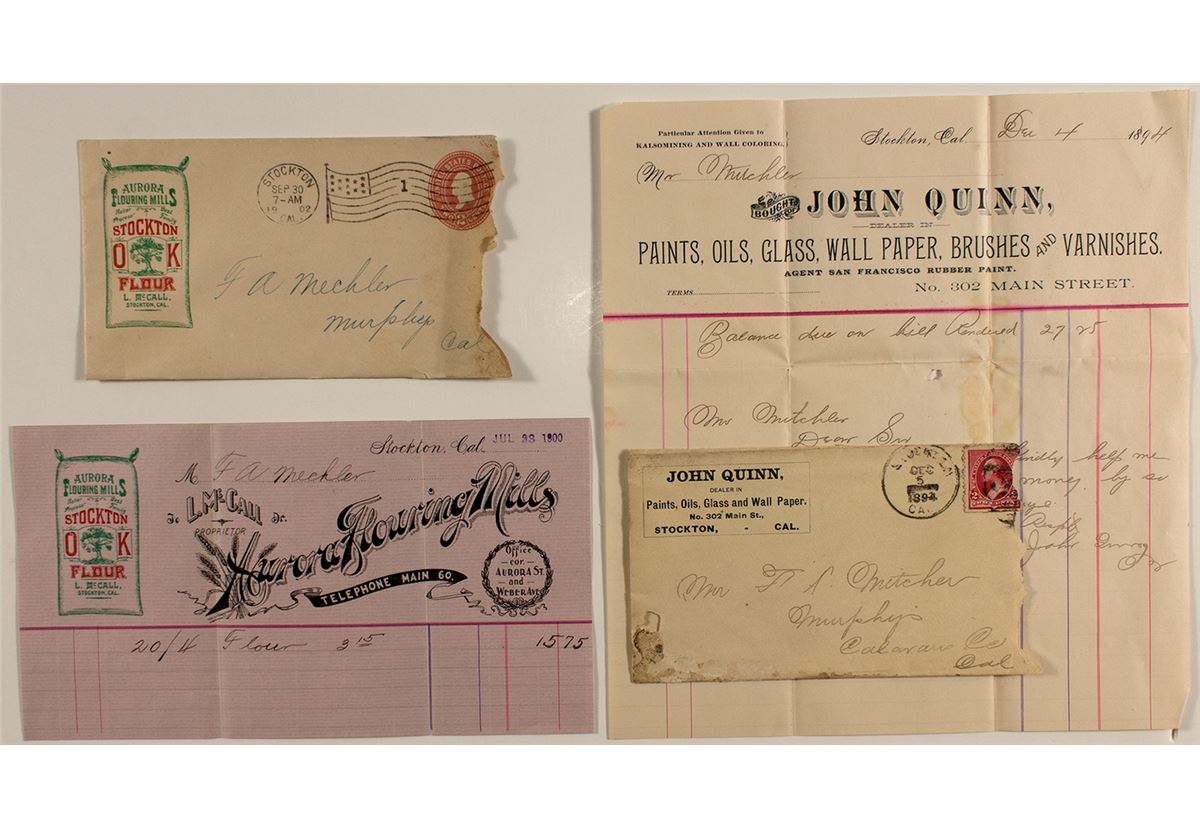 AURORA
FLOURING MILLS
STOCKTON
O K
FLOUR
L. McCALL,
STOCKTON, CAL.
STOCKTON
SEP 30
7-AM
19 02
CAL.
1
F A Mechler
Murphys
Cal
Stockton, Cal. JUL 23 1900
M F A Mechler
To L. McCALL Dr.
PROPRIETOR
Aurora Flouring Mills
TELEPHONE MAIN 60.
Office
cor.
AURORA ST.
and
WEBER AVE.
AURORA
FLOURING MILLS
STOCKTON
O K
FLOUR
L. McCALL,
STOCKTON, CAL.
20/4 Flour 3 15 15 75
Particular Attention Given to
KALSOMINING AND WALL COLORING.
Stockton, Cal. Dec 4 1894
Mr Mitchler
BOUGHT OF JOHN QUINN,
DEALER IN
PAINTS, OILS, GLASS, WALL PAPER, BRUSHES AND VARNISHES.
AGENT SAN FRANCISCO RUBBER PAINT.
TERMS No. 302 MAIN STREET.
Balance due on bill Rendered 27 25
Mr Mitchler
Dear Sir
help me
money by so
John Quinn
JOHN QUINN,
DEALER IN
Paints, Oils, Glass and Wall Paper.
No. 302 Main St.,
STOCKTON, - CAL.
DEC
5
1894
CAL.
Mr F A Mitcher
Murphys
Calavaras Co
Cal